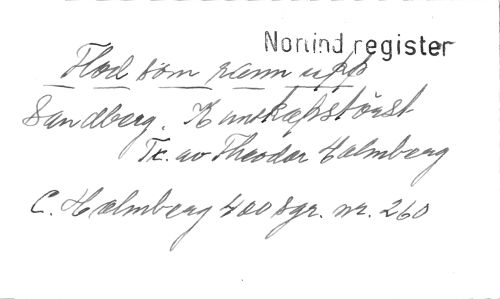 Norlind register
Flod som rann upp
Sandberg. Kunskapstörst
Tr. av Theodor Holmberg
C. Holmberg 400 sgr. nr. 260